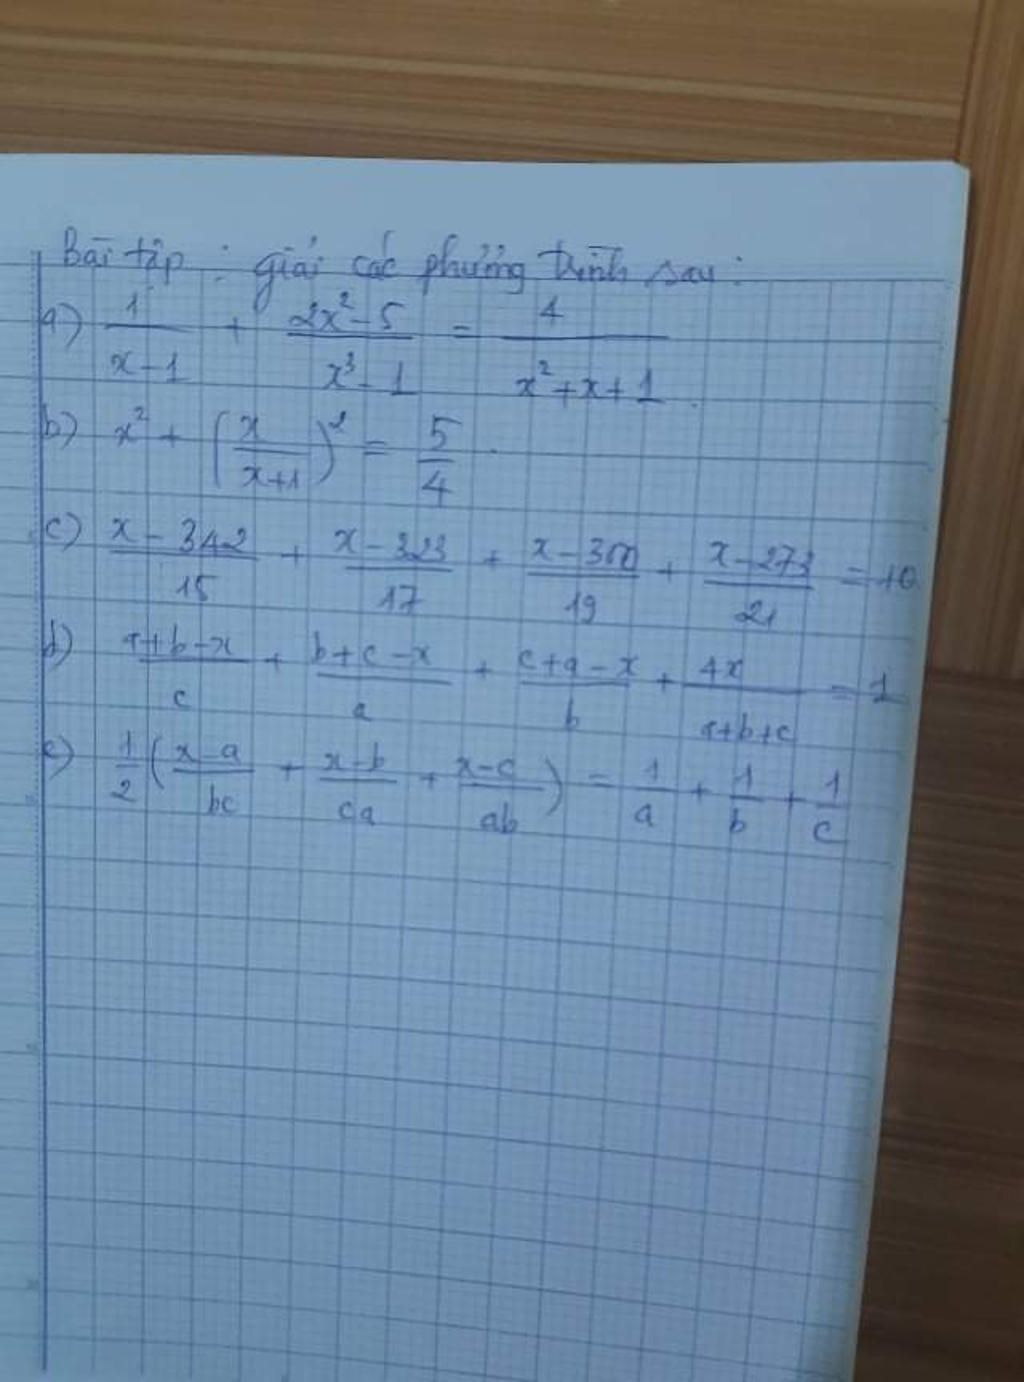 Bài tập : giải các phương trình sau :
a) 1/(x-1) + (2x²-5)/(x³-1) = 4/(x²+x+1)
b) x² + (x/(x+1))² = 5/4
c) (x-342)/15 + (x-323)/17 + (x-300)/19 + (x-273)/21 = 10
d) (a+b-x)/c + (b+c-x)/a + (c+a-x)/b + 4x/(a+b+c) = 1
e) 1/2 ((x-a)/bc + (x-b)/ca + (x-c)/ab) = 1/a + 1/b + 1/c